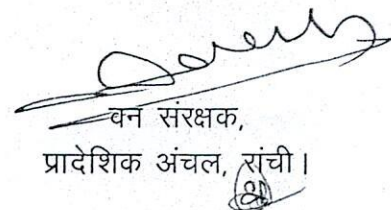 वन संरक्षक,
प्रादेशिक अंचल, रांची।